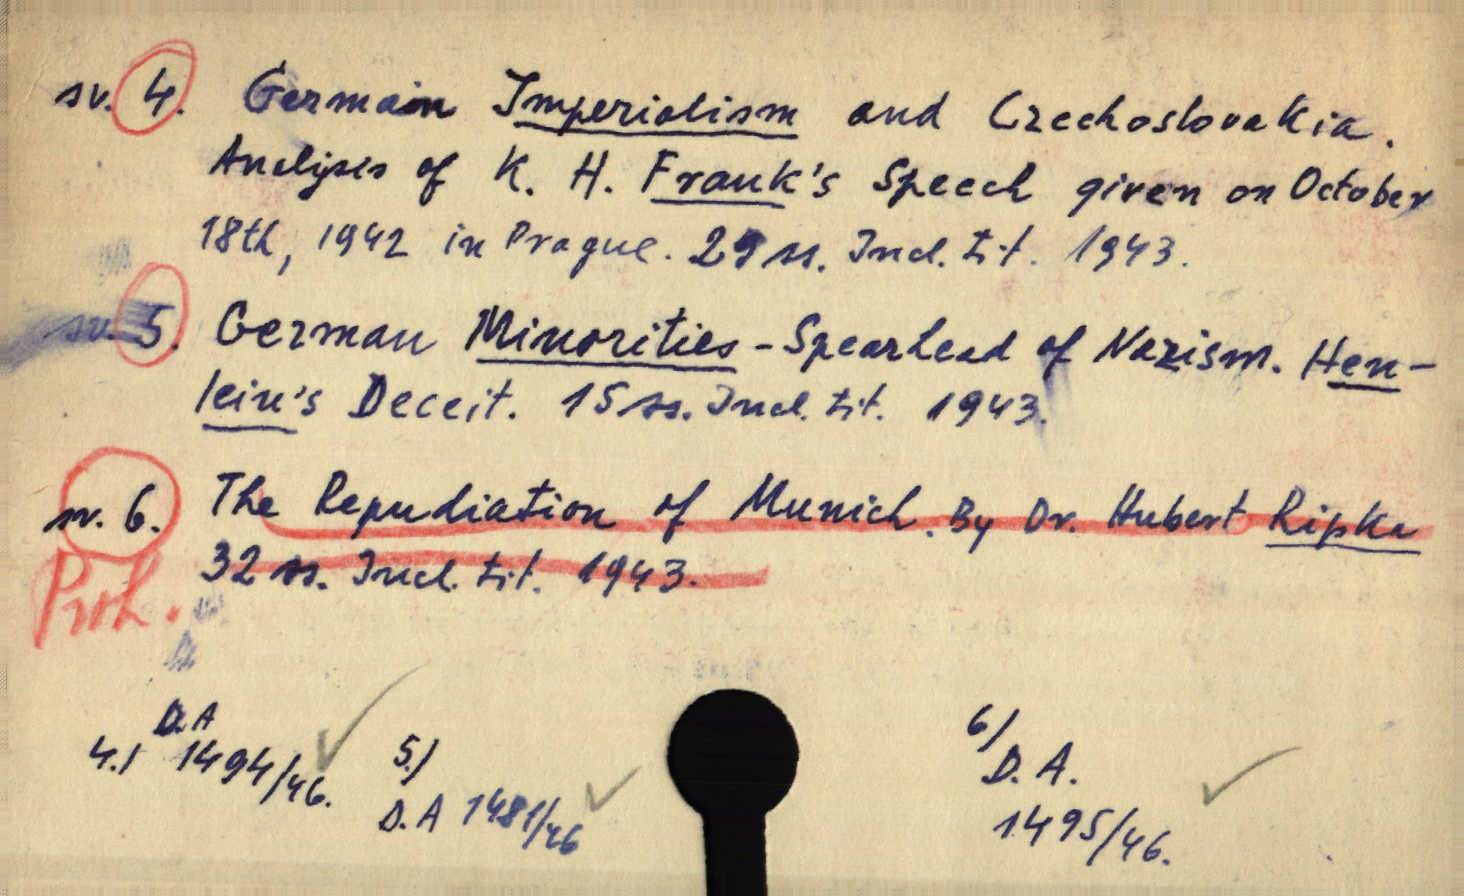 sv. 4. German Imperialism and Czechoslovakia.
Analysis of K. H. Frank's Speech given on October
18th, 1942 in Prague. 29 ss. Incl. tit. 1943.
sv. 5. German Minorities - Spearhead of Nazism. Hen-
lein's Deceit. 15 ss. Incl. tit. 1943.
sv. 6. The Repudiation of Munich. By Dr. Hubert Ripka
32 ss. Incl. tit. 1943.
Proh.
4.) D.A 1494/46.
5.) D.A 1481/46
6/ D. A. 1495/46.